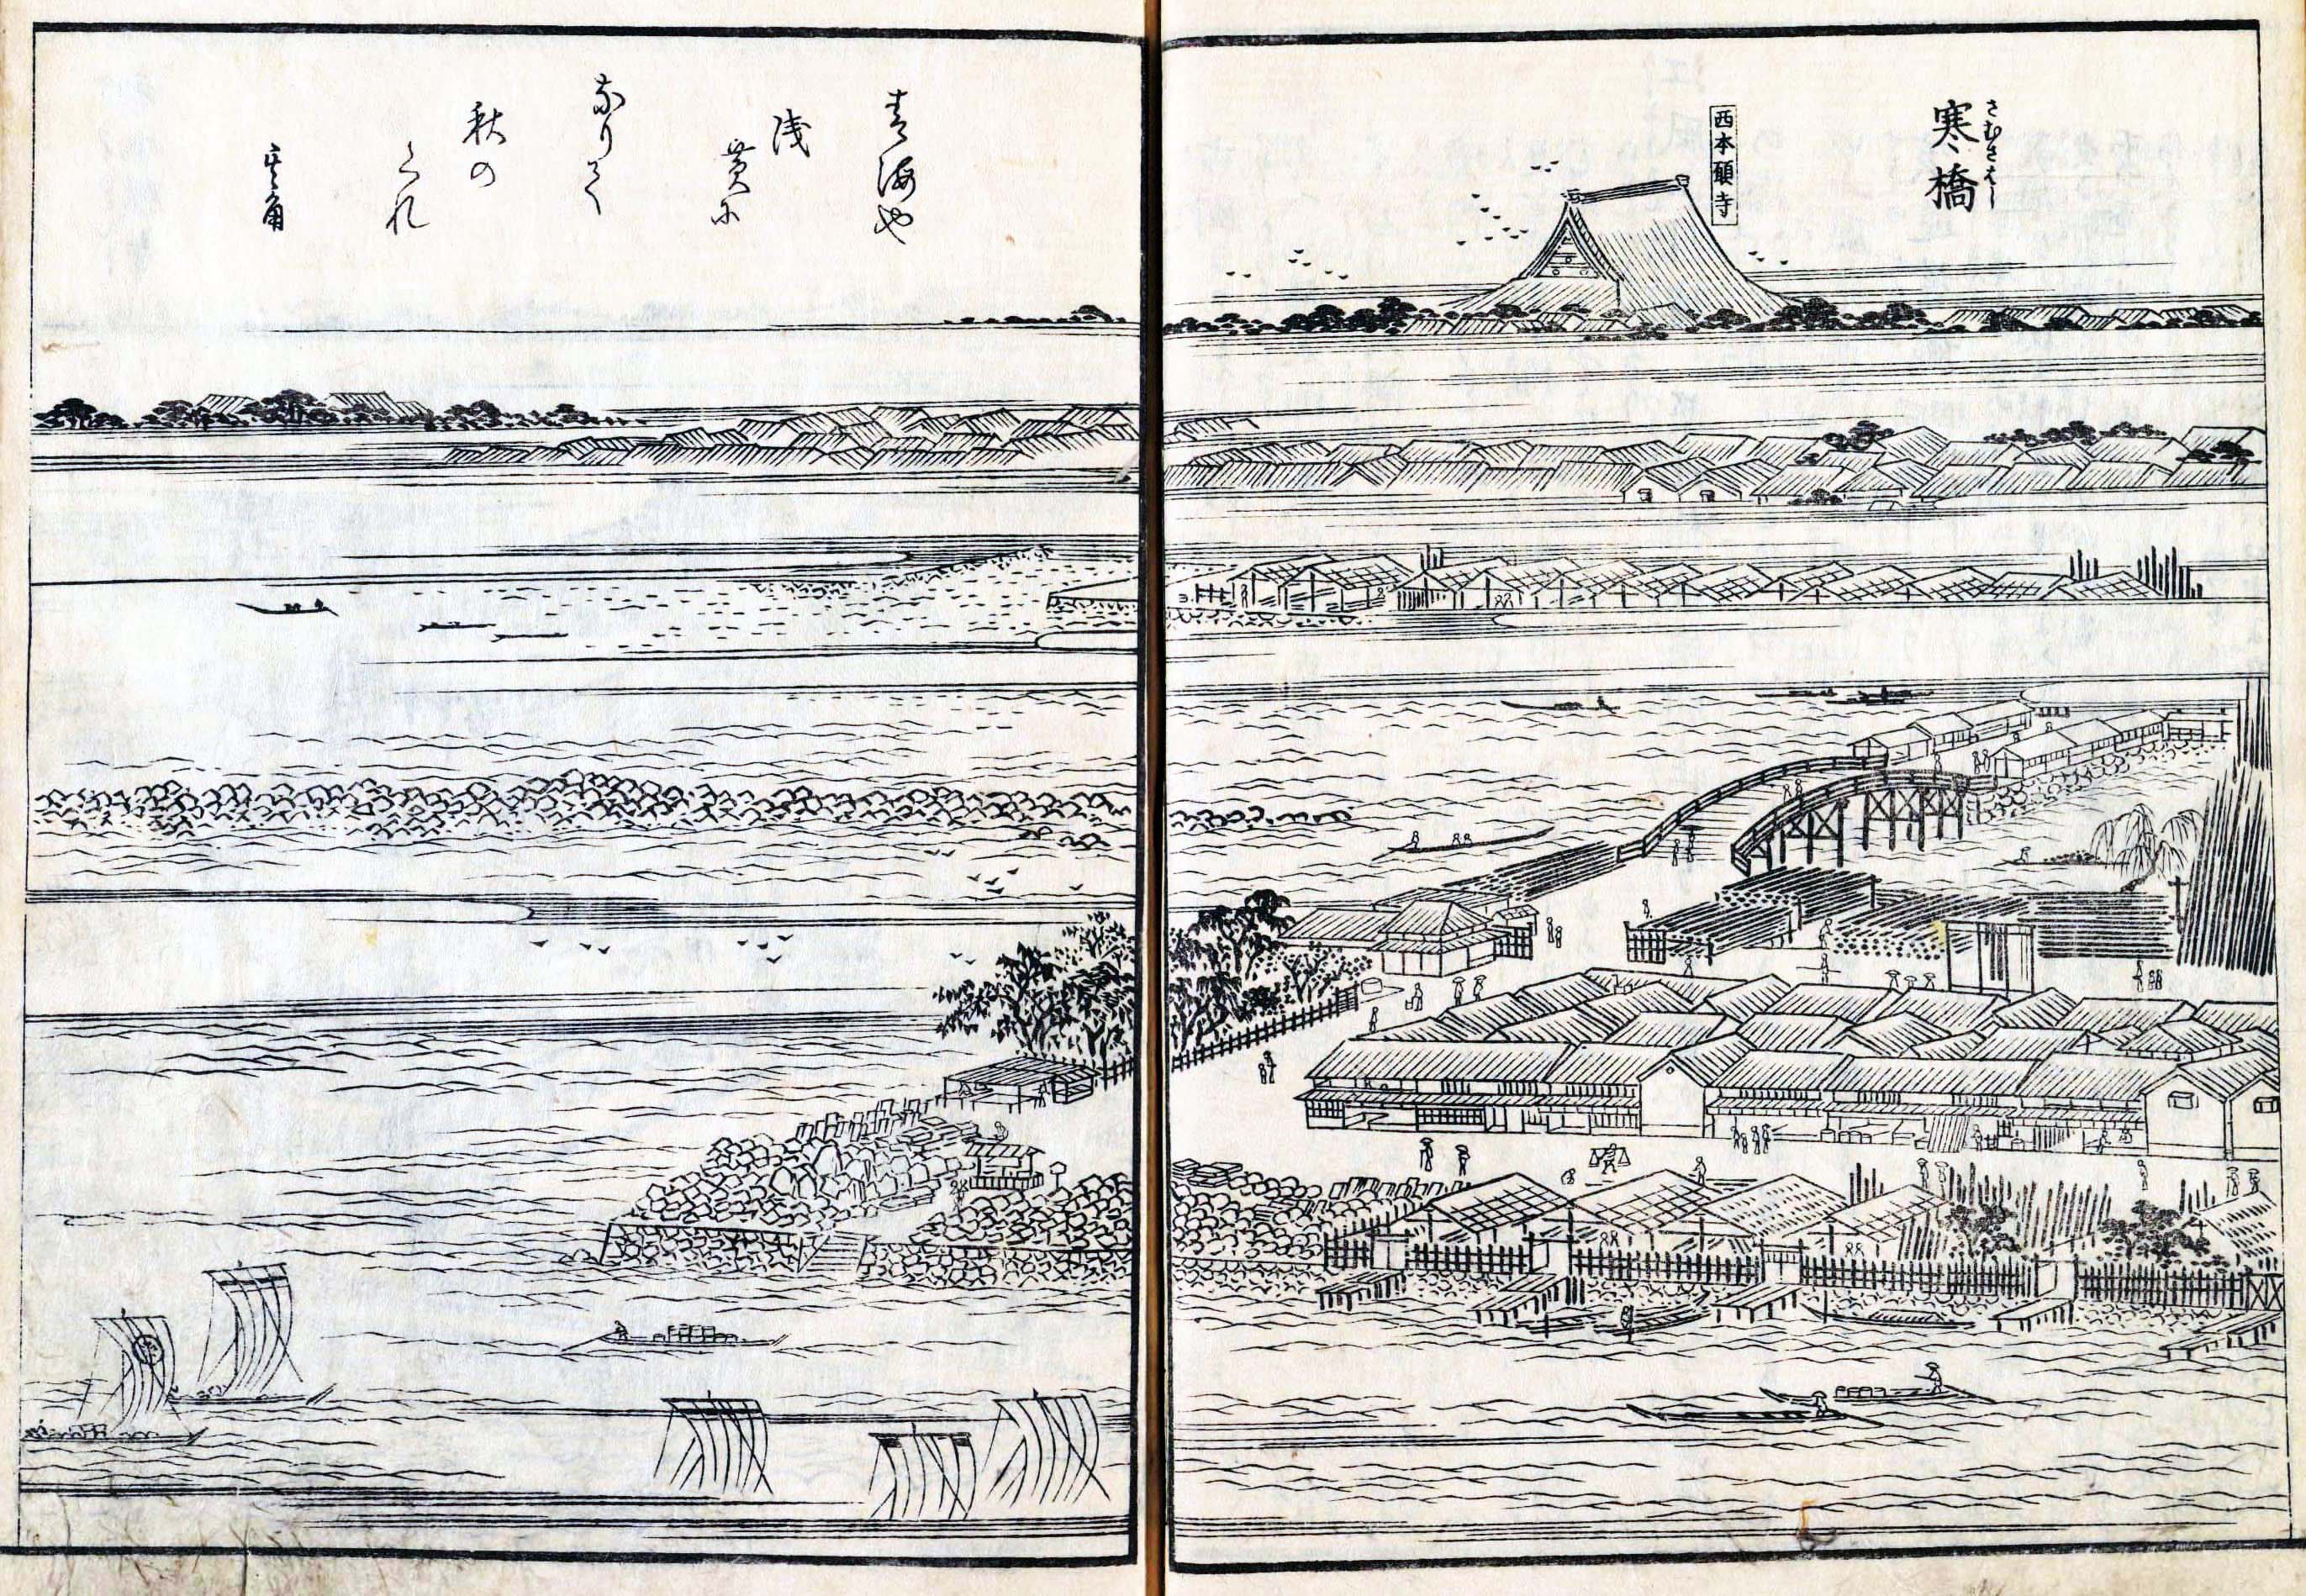 さむさはし
寒橋
西本願寺
青海や
浅
黄に
なりて
秋の
くれ
其角